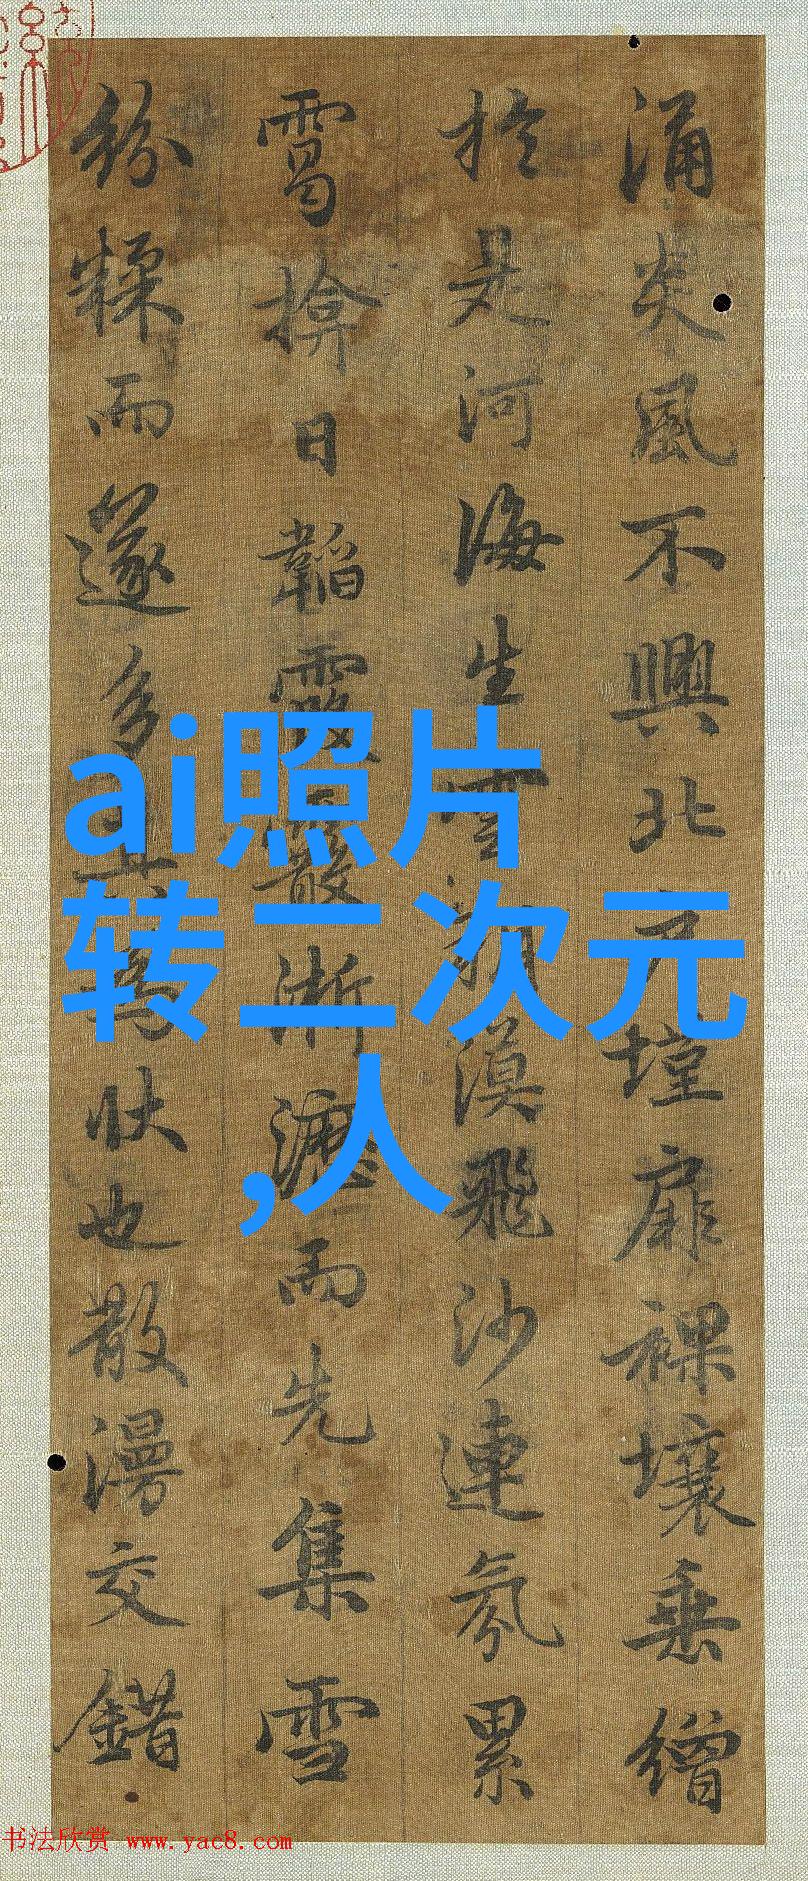 涌炎風不興北户墐扉裸壤乗繒
於是河海生雲朔漠飛沙連氛累
靄揜日韜霞霰淅瀝而先集雪
紛糅而遂多其為狀也散漫交錯
ai照片
转二次元
,人
书法欣赏 www.yac8.com